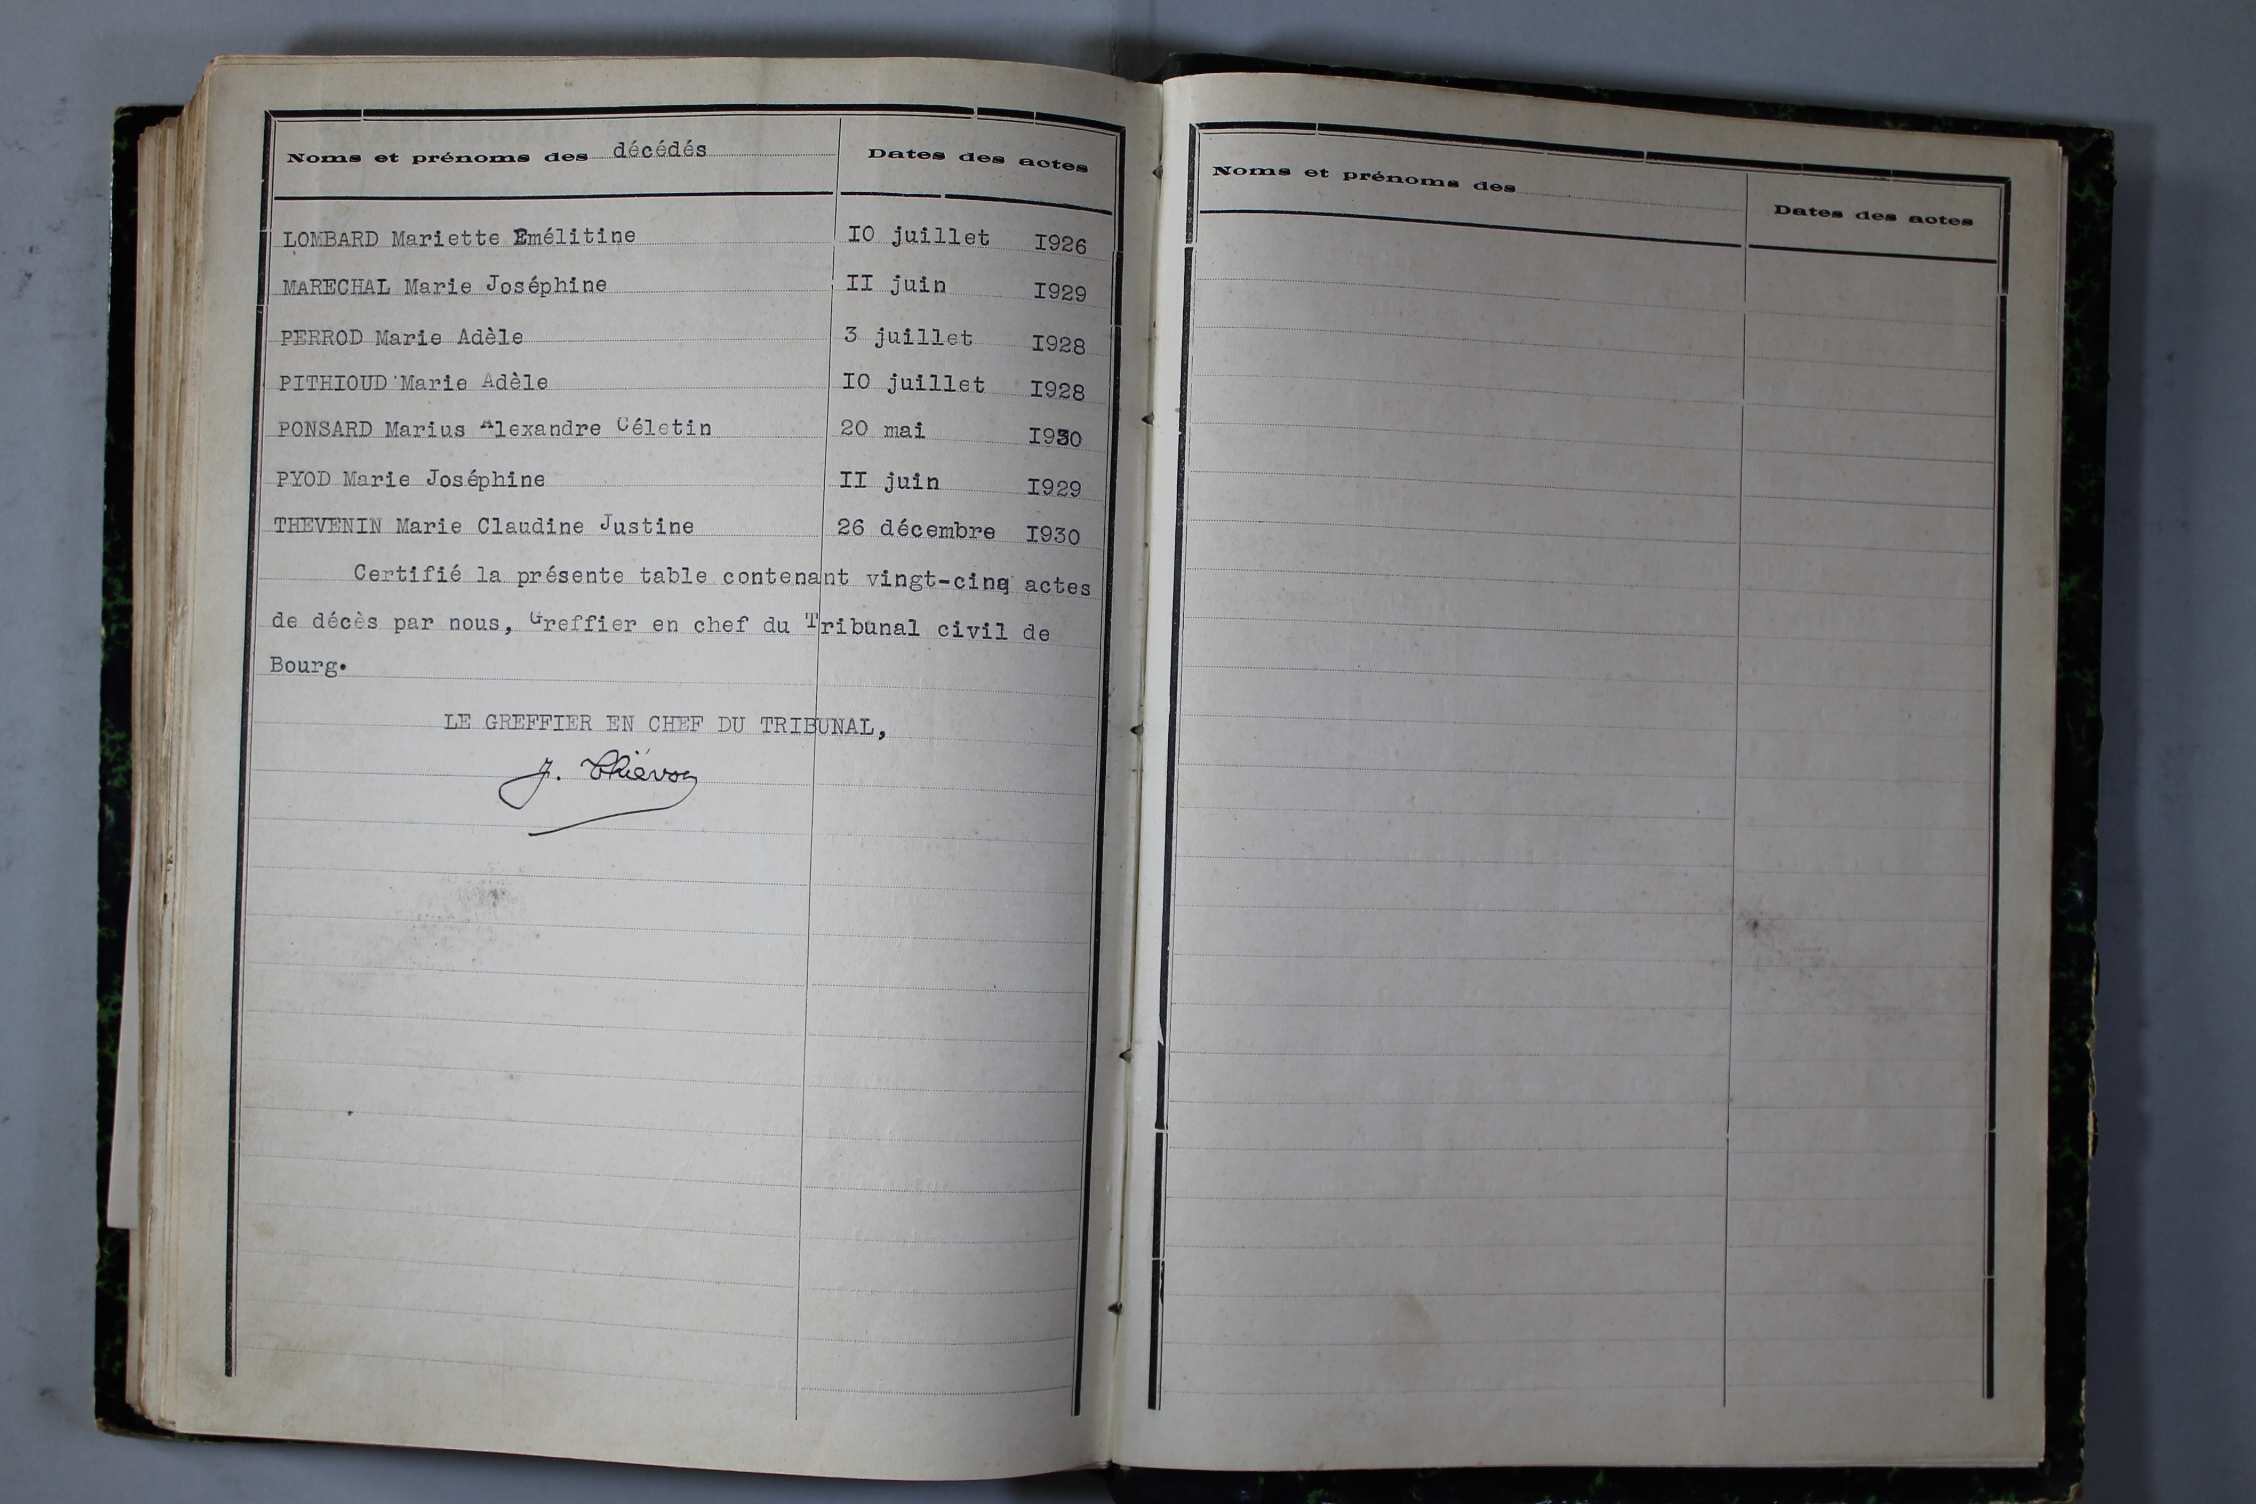 Noms et prénoms des décédés Dates des actes
LOMBARD Mariette Emélitine IO juillet I926
MARECHAL Marie Joséphine II juin I929
PERROD Marie Adèle 3 juillet I928
PITHIOUD Marie Adèle IO juillet I928
PONSARD Marius Alexandre Céletin 20 mai I930
PYOD Marie Joséphine II juin I929
THEVENIN Marie Claudine Justine 26 décembre I930
Certifié la présente table contenant vingt-cinq actes
de décès par nous, Greffier en chef du Tribunal civil de
Bourg.
LE GREFFIER EN CHEF DU TRIBUNAL,
J.
Noms et prénoms des Dates des actes